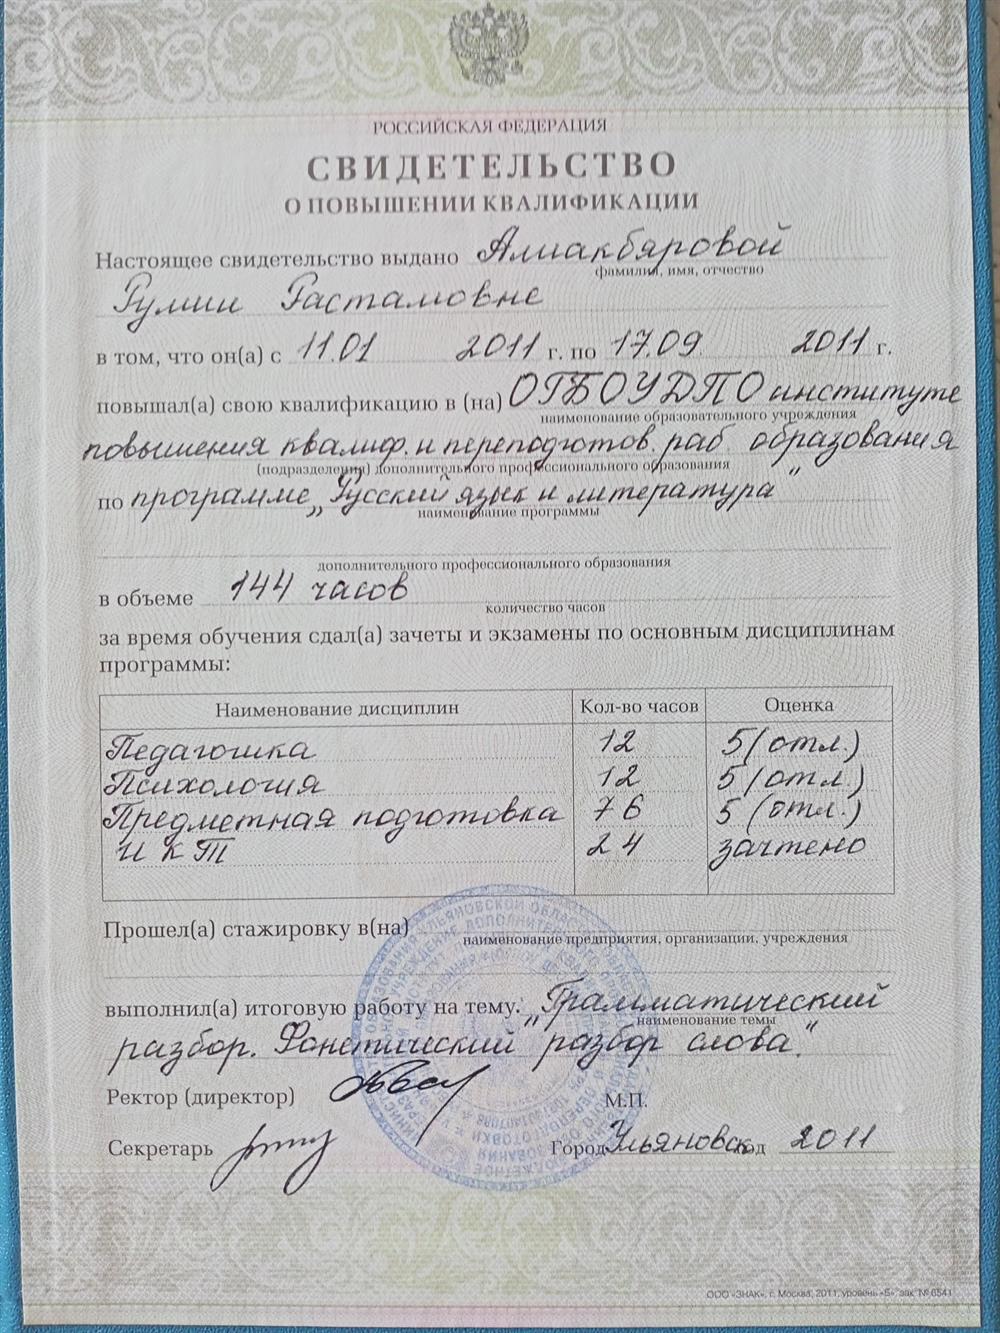 РОССИЙСКАЯ ФЕДЕРАЦИЯ
СВИДЕТЕЛЬСТВО
О ПОВЫШЕНИИ КВАЛИФИКАЦИИ
Настоящее свидетельство выдано Алиакбяровой
фамилия, имя, отчество
Румии Растамовне
в том, что он(а) с 11.01 2011 г. по 17.09. 2011 г.
повышал(а) свою квалификацию в (на) ОГБОУДПО институте
наименование образовательного учреждения
повышения квалиф. и переподготов. раб. образования
(подразделения) дополнительного профессионального образования
по программе „Русский язык и литература"
наименование программы
дополнительного профессионального образования
в объеме 144 часов
количество часов
за время обучения сдал(а) зачеты и экзамены по основным дисциплинам
программы:
Наименование дисциплин Кол-во часов Оценка
Педагогика 12 5 (отл.)
Психология 12 5 (отл)
Предметная подготовка 76 5 (отл.)
ИКТ 24 зачтено
Прошел(а) стажировку в(на)
наименование предприятия, организации, учреждения
выполнил(а) итоговую работу на тему: „Грамматический
наименование темы
разбор. Фонетический разбор слова."
Ректор (директор) М.П.
Секретарь Город Ульяновск год 2011
ООО «ЗНАК», г. Москва, 2011, уровень «Б», зак. № 6541